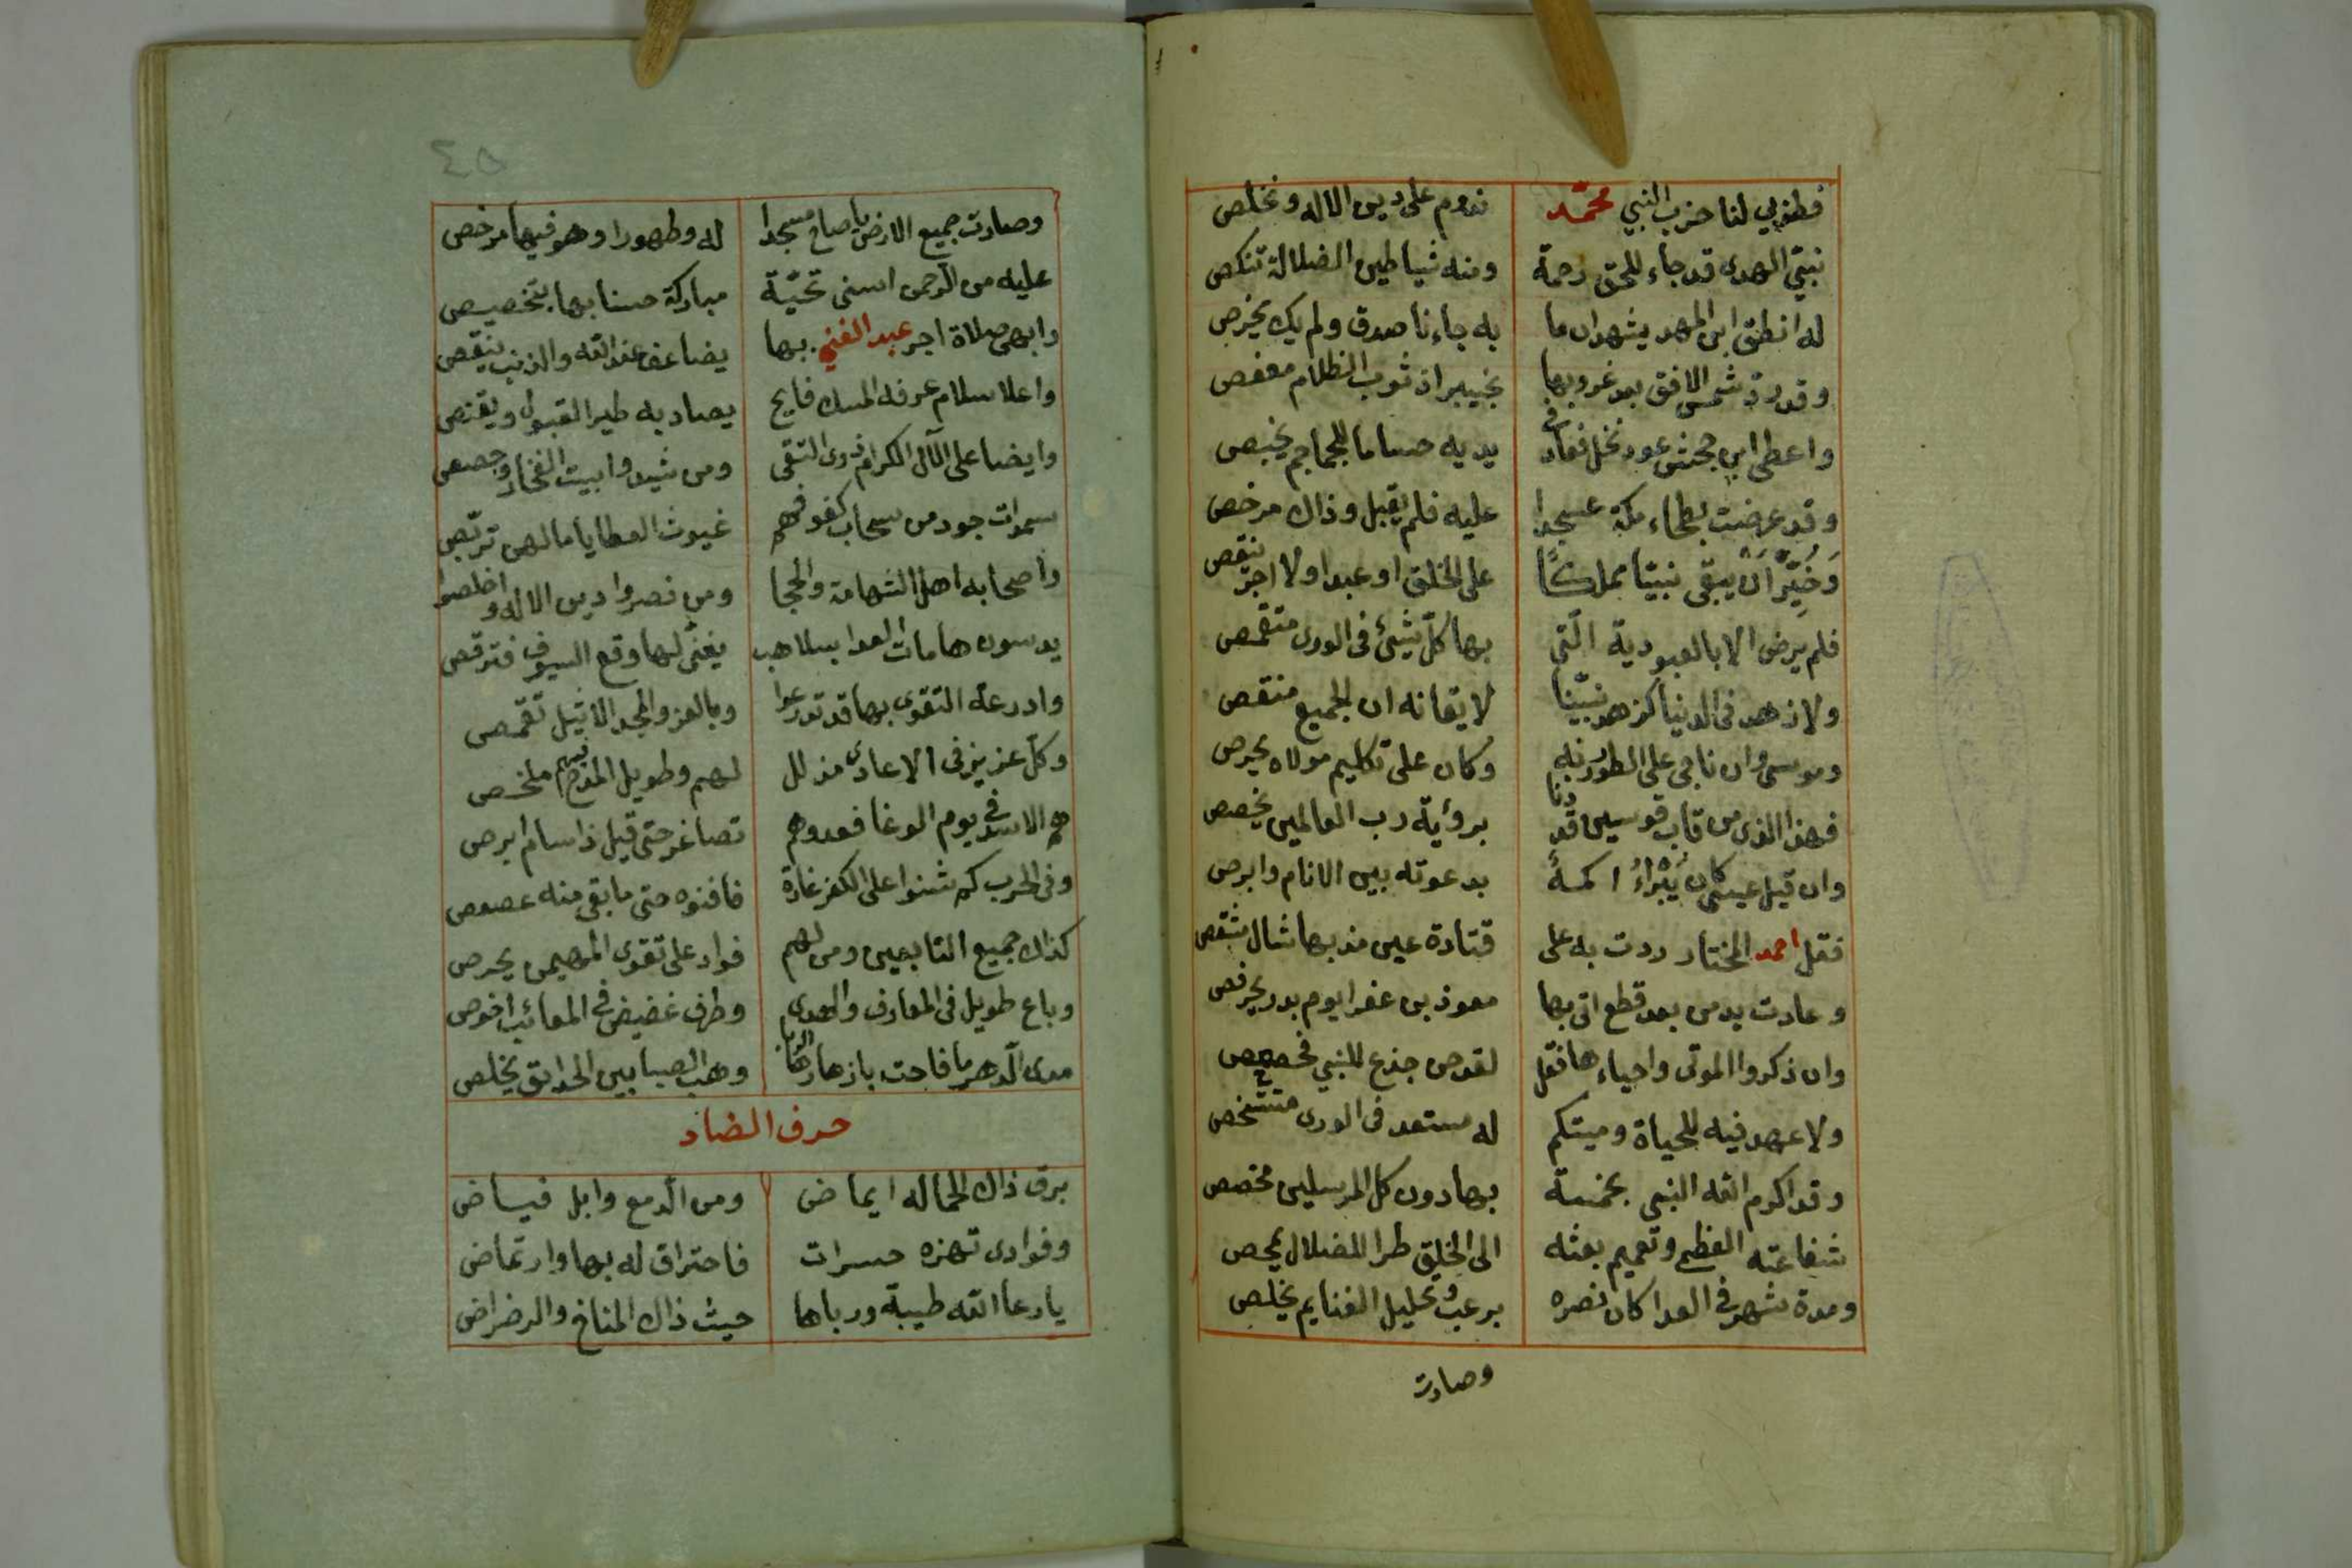 فطوبى لنا حزب النبي محمد ندوم على دين الاله ونخلص
نبيّ الهدى قد جاء للحق رحمة ومنه شياطين الضلالة تنكص
له انطق ابن المهد يشهد ان ما به جاءنا صدق ولم يك يخرص
وقد ردّ شمس الافق بعد غروبها بخيبر اذ ثوب الظلام معفص
واعطى ابن جحش عود نخل فعاد في يديه حساما للجماجم يخبص
وقد عرضت بطحاء مكة عسجدا عليه فلم يقبل وذاك مرخص
وَخُيِّرَ اَنْ يبقى نبيّا مملكًا على الخلق او عبدا ولا اجر ينقص
فلم يرض الا بالعبودية الّتي بها كلّ شيئ في الورى متقمص
ولا زهد في الدنيا كزهد نبيّنا لايقانه ان الجميع منقص
وموسى وان ناجى على الطور ربه وكان على تكليم مولاه يحرص
فهذا الذي من قاب قوسين قد دنا برؤية رب العالمين يخصص
وان قيل عيسى كان يُبْرَاءُ اكمهً بدعوته بين الانام وابرص
فقل احمد المختار ردت به على قتادة عين مذ بها شال
وعادت يد من بعد قطع اتى بها معوذ بن عفرا يوم بدر
وان ذكروا الموتى واحياءها فقل لقد حن جذع للنبي
ولا عهد فيه للحياة وميتكم له مستعد في الورى متشخص
وقد اكرم الله النبي بخمسة بها دون كل المرسلين مخصص
شفاعته العظمى وتعميم بعثه الى الخلق طرا للضلال يمحص
ومدة شهر في العدا كان نصره برعب وتحليل الغنايم يخلص
وصارت
٤٥
وصارت جميع الارض يا صاح مسجدا له وطهورا وهو فيها مرخص
عليه من الرّحمن اسنى تحيّة مباركة حسنا بها بتخصيص
وابهى صلاة اجر عبد الغني بها يضاعف عند الله والذنب ينقص
واعلا سلام عرفه المسك فايح يصاد به طير القبول ويقنص
وايضا على الآل الكرام ذوى التقى ومن شيدوا بيت الفخار وجصصوا
سموات جود من سحاب كفوفهم غيوث العطايا ما لهن تربّص
واصحابه اهل الشهامة والحجا ومن نصروا دين الاله واخلصوا
يدسون هامات العدا بسلاهب يغنّى لها وقع السيوف فترقص
وادرعة التقوى بها قد تدرعوا وبالعز والمجد الاثيل تقمصو
وكلّ عزيز في الاعادى مذلل لهم وطويل المدح فيهم ملخص
هم الاسد في يوم الوغا فعدوهم تصاغر حتى قيل ذا سام ابرص
وفي الحرب كم شنوا على الكفر غارة فافنوه حتى ما بقى منه عصوص
كذاك جميع التابعين ومن لهم فواد على تقوى المهيمن يحرص
وباع طويل في المعارف والهدى وطرف غضيض في المعائب اخوص
مدى الدّهر ما فاحت بازهارها الربا وهب الصبا بين الحدايق يخلص
حرف الضاد
برق ذاك الحما له ايماض ومن الدّمع وابل فياض
وفوادى تهزه حسرات فاحتراق له بها وارتماض
يا رعا الله طيبة ورباها حيث ذاك المناخ والرضراض